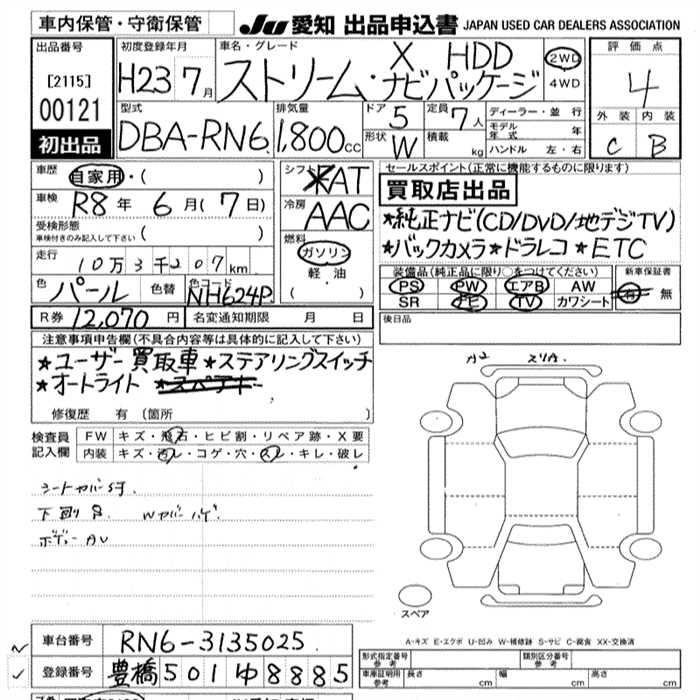 車内保管・守衛保管
JU 愛知 出品申込書 JAPAN USED CAR DEALERS ASSOCIATION
出品番号
[2115]
00121
初出品
初度登録年月
H23 7月
車名・グレード
X HDD
ストリーム・ナビパッケージ
2WD
4WD
評価点
4
外装 内装
C B
型式
DBA-RN6
排気量
1,800cc
ドア 5
定員 7人
形状 W
積載 kg
ディーラー・並行
モデル年式 年
ハンドル 左・右
車歴 自家用・( )
車検 R8年 6月(7日)
受検形態
車検付きのみ記入して下さい ( )
走行 10万3千207km
色 パール 色替 色コード NH624P
R券 12,070円 名変通知期限 月 日
シフト AT
冷房 AAC
燃料
ガソリン
軽・油
( )
セールスポイント(正常に機能するものに限ります)
買取店出品
★純正ナビ(CD/DVD/地デジTV)
★バックカメラ★ドラレコ★ETC
装備品(純正品に限り○をつけてください) 新車保証書
PS PW エアB AW 有 無
SR ナビ TV カワシート
後日品
注意事項申告欄(不具合内容等は具体的に記入して下さい)
★ユーザー買取車★ステアリングスイッチ
★オートライト ★スペアキー
修復歴 有 (箇所 )
検査員 FW キズ・飛石・ヒビ割・リペア跡・X要
記入欄 内装 キズ・汚レ・コゲ・穴・スレ・キレ・破レ
シートカバー付
下廻りS Wカバーハゲ
ボディーAU
A2 スリA
スペア
A-キズ E-エクボ U-凹み W-補修跡 S-サビ C-腐食 XX-交換済
車台番号 RN6-3135025
登録番号 豊橋501ゆ8885
形式指定番号 参考 類別区分番号 参考
車庫証明用 参考 長さ cm 幅 cm 高さ cm